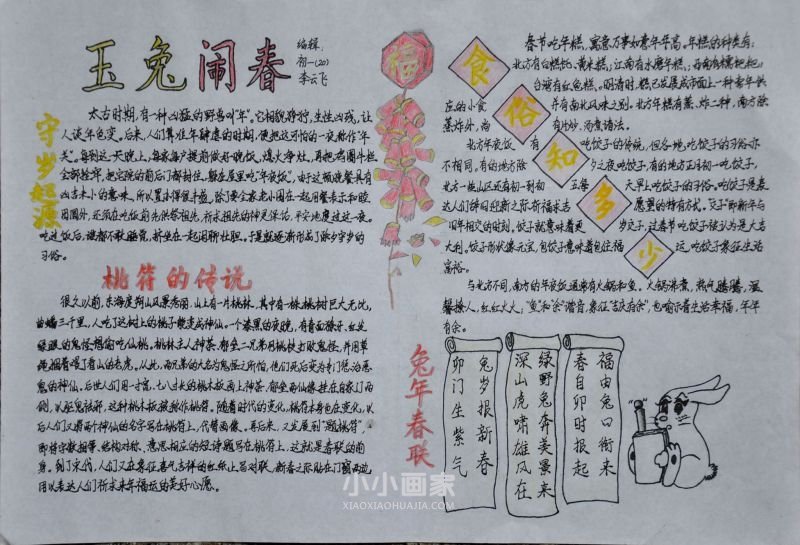 玉兔闹春
编辑:
初一(20)
李云飞
守岁起源
太古时期,有一种凶猛的野兽叫"年"。它相貌狰狞,生性凶残,让
人谈年色变。后来,人们算准年肆虐的时期,便把这可怕的一夜称作"年
关"。每到这一天晚上,每家每户提前做好晚饭,熄火净灶,再把鸡圈牛栏
全部拴牢,把宅院的前后门都封住,躲在屋里吃"年夜饭"。由于这顿晚餐具有
凶吉未卜的意味,所以置办得很丰盛,除了要全家老小围在一起用餐表示和睦
团圆外,还须在吃饭前先供祭祖先,祈求祖先的神灵保佑,平安地度过这一夜。
吃过饭后,谁都不敢睡觉,挤坐在一起闲聊壮胆。于是就逐渐形成了除夕守岁的
习俗。
桃符的传说
很久以前,东海度朔山风景秀丽,山上有一片桃林,其中有一株桃树巨大无比,
曲蟠三千里,人吃了这树上的桃子能变成神仙。一个漆黑的夜晚,有青面獠牙、红发
绿眼的鬼怪想偷吃仙桃。桃林主人神荼、郁垒二兄弟用桃枝打败鬼怪,并用草
绳捆着喂了看山的老虎。从此,两兄弟的大名为鬼怪所怕,他们死后变为专门惩治恶
鬼的神仙。后世人们用一寸宽、七八寸的桃木板画上神荼、郁垒两仙像挂在自家门两
侧,以驱鬼祛邪,这种桃木板被称作桃符。随着时代的变化,桃符本身也在变化,以
后人们又将两个神仙的名字写在桃符上,代替画像。再后来,又发展到"题桃符",
即将字数相等、结构对称、意思相应的短诗题写在桃符上。这就是春联的前
身。到了宋代,人们又在象征喜气吉祥的红纸上写对联,新春之际贴在门窗两边,
用以表达人们祈求来年福运的美好心愿。
福
食俗知多少
春节吃年糕,寓意万事如意年年高。年糕的种类有:
北方有白糕饦、黄米糕;江南有水磨年糕;西南有糯粑粑;
台湾有红龟糕。明清时,糕已发展成市面上一种常年供
应的小食 并有南北风味之别。北方年糕有蒸、炸二种,南方除
蒸炸外,尚 有片炒、汤煮诸法。
北方年夜饭 有吃饺子的传统,但各地吃饺子的习俗亦
不相同,有的地方除 夕之夜吃饺子,有的地方正月初一吃饺子,
北方一些山区还有初一到初 五每天早上吃饺子的习俗。吃饺子是表
达人们辞旧迎新之际祈福求吉 愿望的特有方式。子即新年与
旧年相交的时刻。饺子就意味着更 岁交子,过春节吃饺子被认为是大吉
大利。饺子形状像元宝,包饺子意味着包住福 运,吃饺子象征生活
富裕。
与北方不同,南方的年夜饭通常有火锅和鱼。火锅沸煮,热气腾腾,温
馨撩人,红红火火;"鱼"和"余"谐音,象征"吉庆有余",也喻示着生活幸福,年年
有余。
兔年春联
兔岁报新春
卯门生紫气
绿野兔奔美景来
深山虎啸雄风在
福由兔口衔来
春自卯时报起
小小画家
XIAOXIAOHUAJIA.COM